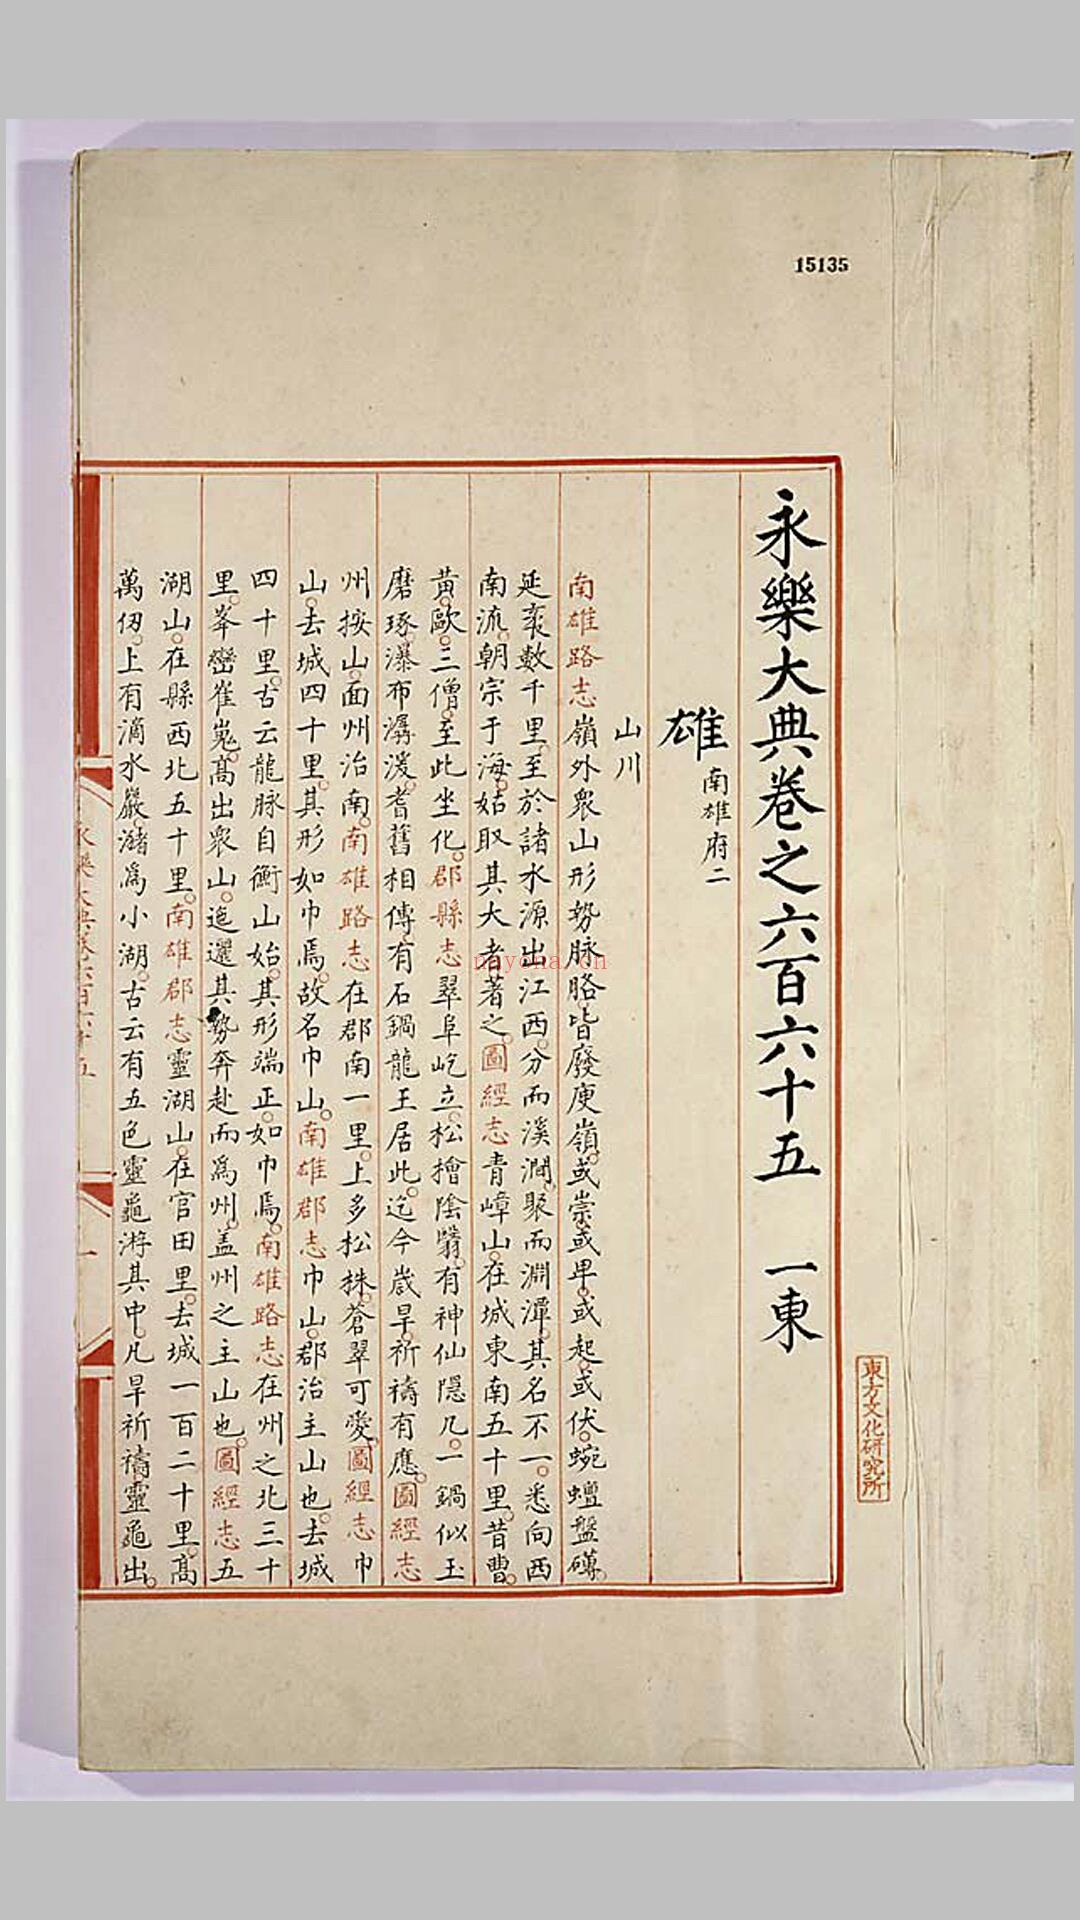 15135
永樂大典卷之六百六十五 一東
雄 南雄府二
山川
南雄路志嶺外衆山形勢脉胳皆廢庾嶺或崇或早或起或伏蜿蟺盤礴
延袤數千里至於諸水源出江西分而溪澗聚而淵潭其名不一悉向西
南流朝宗于海姑取其大者著之圖經志青嶂山在城東南五十里昔曹
黄歐三僧至此坐化郡縣志翠阜屹立松檜陰翳有神仙隱几一鍋似玉
磨琢瀑布潺湲耆舊相傳有石鍋龍王居此迄今歲旱祈禱有應圖經志
州按山面州治南南雄路志在郡南一里上多松株蒼翠可愛圖經志巾
山去城四十里其形如巾焉故名巾山南雄郡志巾山郡治主山也去城
四十里古云龍脉自衡山始其形端正如巾焉南雄路志在州之北三十
里峯巒崔嵬高出衆山迤邐其勢奔赴而爲州盖州之主山也圖經志五
湖山在縣西北五十里南雄郡志靈湖山在官田里去城一百二十里高
萬仭上有滴水巖瀦爲小湖古云有五色靈龜游其中凡旱祈禱靈龜出
永樂大典卷六百六十五
一
東方文化研究所
nayona.cn